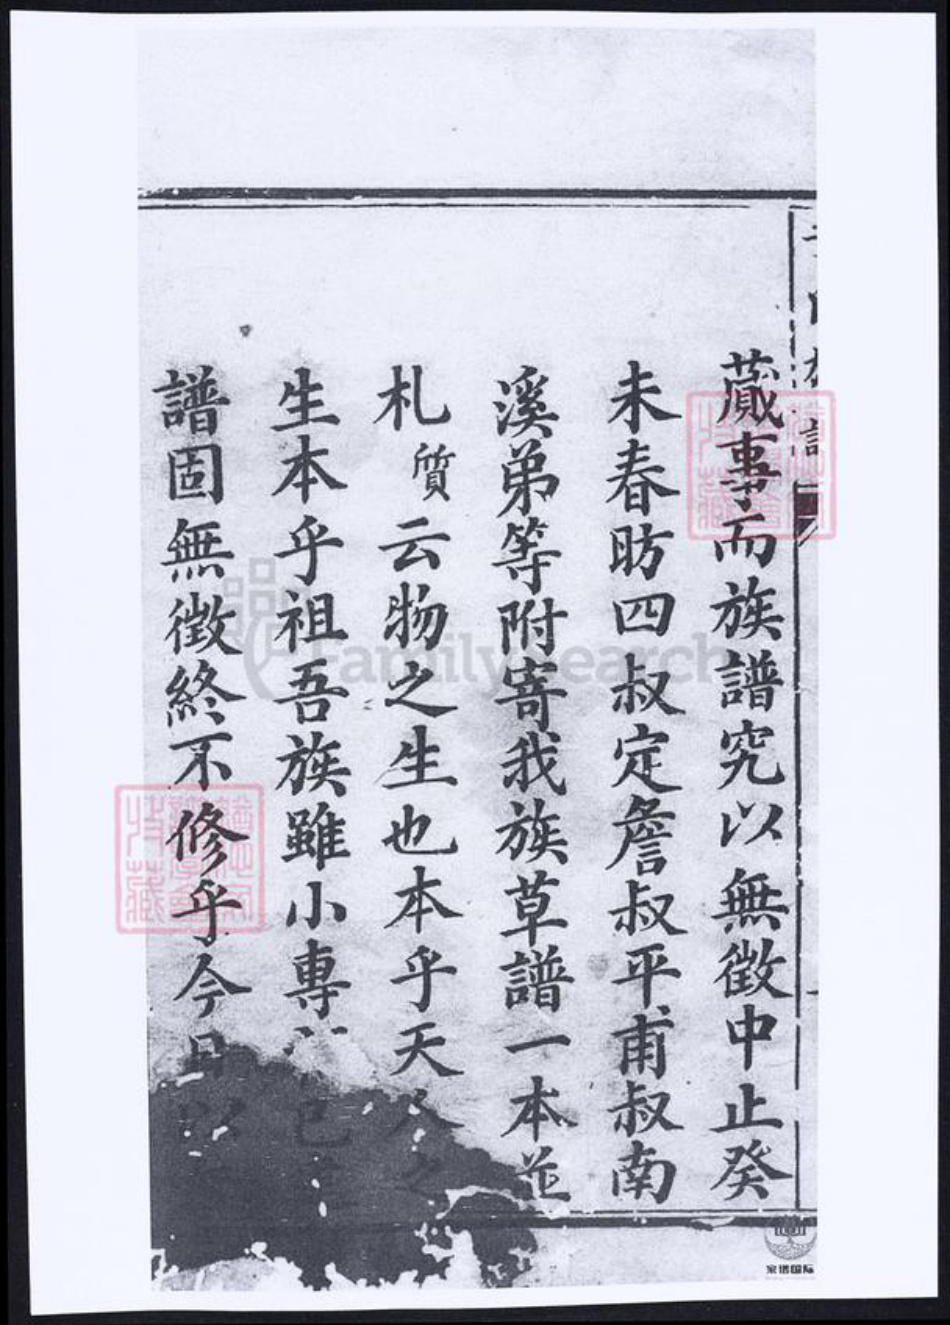 蕆事而族譜究以無徵中止癸
未春昉四叔定詹叔平甫叔南
溪弟等附寄我族草譜一本並
札質云物之生也本乎天人之
生本乎祖吾族雖小專已
譜固無徵終不修乎今日以
FamilySearch
特藏
特藏
家谱国际